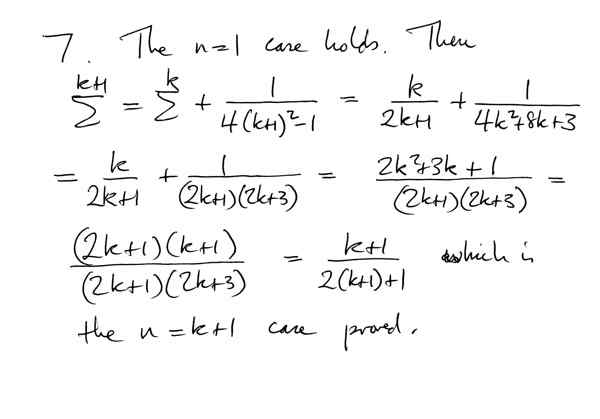 7. The n=1 case holds. Then
\sum^{k+1} = \sum^{k} + \frac{1}{4(k+1)^2-1} = \frac{k}{2k+1} + \frac{1}{4k^2+8k+3}
= \frac{k}{2k+1} + \frac{1}{(2k+1)(2k+3)} = \frac{2k^2+3k+1}{(2k+1)(2k+3)} =
\frac{(2k+1)(k+1)}{(2k+1)(2k+3)} = \frac{k+1}{2(k+1)+1} which is
the n=k+1 case proved.